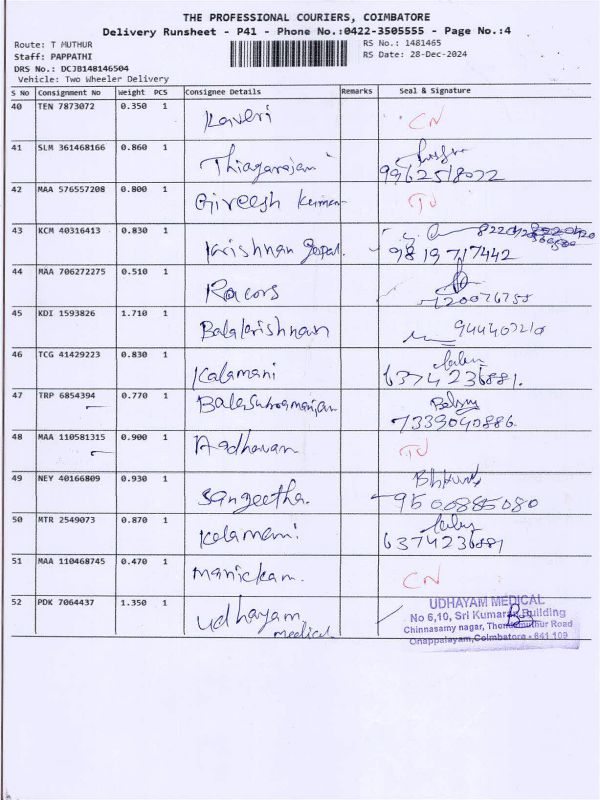 THE PROFESSIONAL COURIERS, COIMBATORE
Delivery Runsheet - P41 - Phone No.:0422-3505555 - Page No.:4
Route: T MUTHUR RS No.: 1481465
Staff: PAPPATHI RS Date: 28-Dec-2024
DRS No.: DCJB148146504
Vehicle: Two Wheeler Delivery
S No Consignment No Weight PCS Consignee Details Remarks Seal & Signature
40 TEN 7873072 0.350 1 Kaveri CN
41 SLM 361468166 0.860 1 Thiagarajan 9962518022
42 MAA 576557208 0.800 1 Gireesh Kumar
43 KCM 40316413 0.830 1 Krishnan Gopal 9819717442
44 MAA 706272275 0.510 1 Racors
45 KDI 1593826 1.710 1 Balakrishnan
46 TCG 41429223 0.830 1 Kalamani 6374236881.
47 TRP 6854394 0.770 1 Balasubramaniam 7339040886.
48 MAA 110581315 0.900 1 Aadhavan
49 NEY 40166809 0.930 1 Sangeetha. 9500885080
50 MTR 2549073 0.870 1 Kalamani 6374236881
51 MAA 110468745 0.470 1 Manickam. CN
52 PDK 7064437 1.350 1 Udhayam medical
UDHAYAM MEDICAL
No 6,10, Sri Kumaran Building
Chinnasamy nagar, Thondamuthur Road
Onappalayam,Coimbatore - 641 109